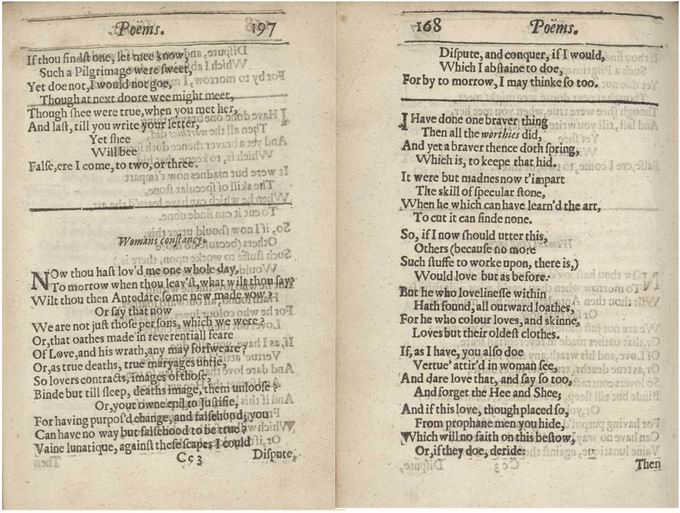 Poëms. 197
If thou findst one, let mee know,
Such a Pilgrimage were sweet,
Yet doe not, I would not goe,
Though at next doore wee might meet,
Though shee were true, when you met her,
And last, till you write your letter,
Yet shee
Will bee
False, ere I come, to two, or three.
Womans constancy.
NOw thou hast lov'd me one whole day,
To morrow when thou leav'st, what wilt thou say?
Wilt thou then Antedate some new made vow?
Or say that now
We are not just those persons, which we were?
Or, that oathes made in reverentiall feare
Of Love, and his wrath, any may forsweare?
Or, as true deaths, true maryages untie,
So lovers contracts, images of those,
Binde but till sleep, deaths image, them unloose?
Or, your owne end to Justifie,
For having purpos'd change, and falsehood; you
Can have no way but falsehood to be true?
Vaine lunatique, against these scapes I could
Cc3 Dispute,
168 Poëms.
Dispute, and conquer, if I would,
Which I abstaine to doe,
For by to morrow, I may thinke so too.
I Have done one braver thing
Then all the worthies did,
And yet a braver thence doth spring,
Which is, to keepe that hid.
It were but madnes now t'impart
The skill of specular stone,
When he which can have learn'd the art,
To cut it can finde none.
So, if I now should utter this,
Others (because no more
Such stuffe to worke upon, there is,)
Would love but as before.
But he who lovelinesse within
Hath found, all outward loathes,
For he who colour loves, and skinne,
Loves but their oldest clothes.
If, as I have, you also doe
Vertue' attir'd in woman see,
And dare love that, and say so too,
And forget the Hee and Shee;
And if this love, though placed so,
From prophane men you hide,
Which will no faith on this bestow,
Or, if they doe, deride:
Then